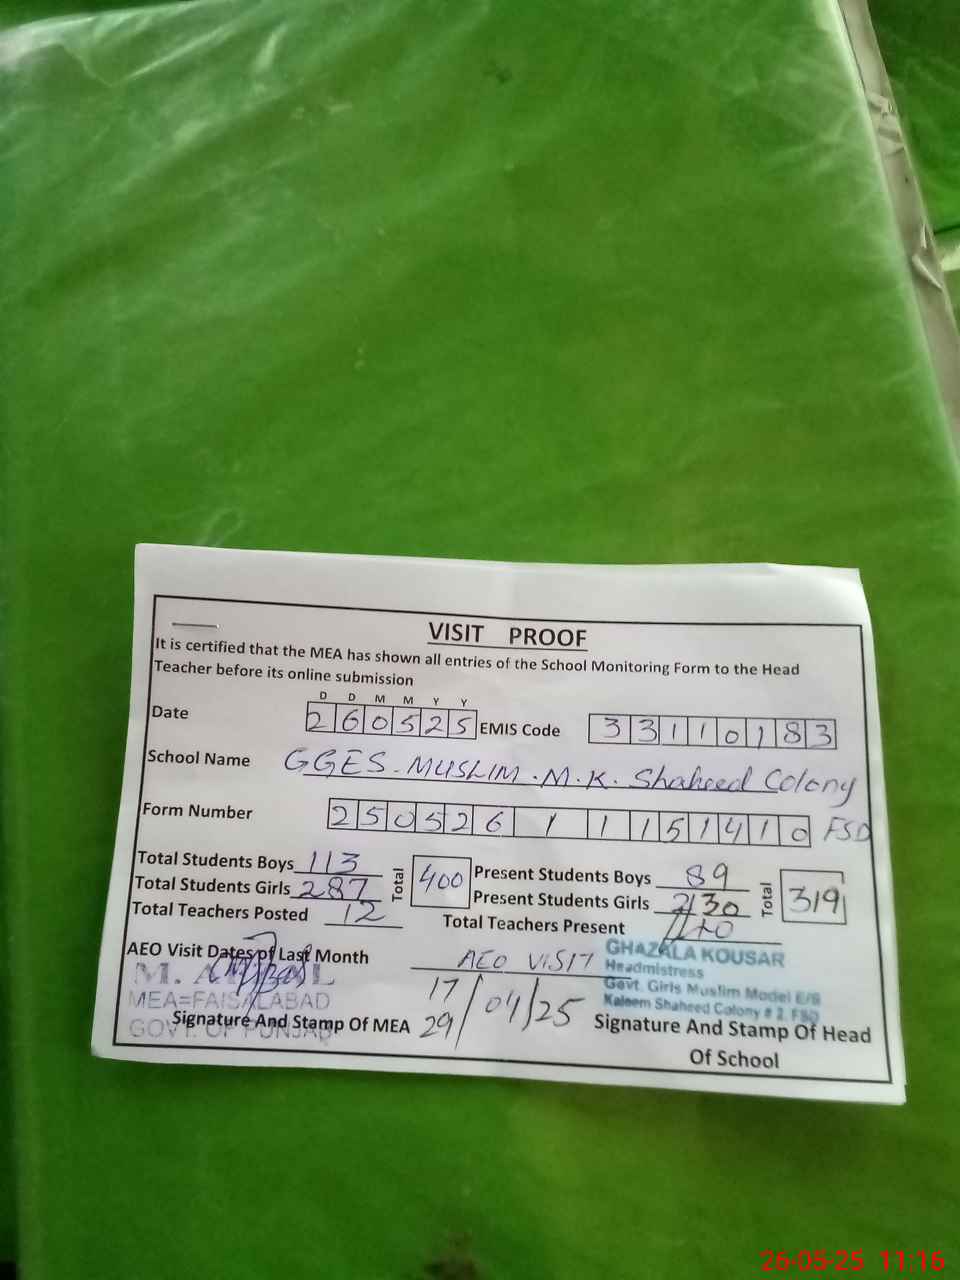 VISIT PROOF
It is certified that the MEA has shown all entries of the School Monitoring Form to the Head
Teacher before its online submission
D D M M Y Y
Date 2 6 0 5 2 5 EMIS Code 3 3 1 1 0 1 8 3
School Name GGES - MUSLIM . M . K . Shaheed Colony
Form Number 2 5 0 5 2 6 1 1 1 5 1 4 1 0 FSD
Total Students Boys 113 Total 400 Present Students Boys 89 Total 319
Total Students Girls 287 Present Students Girls 230
Total Teachers Posted 12 Total Teachers Present 10
AEO Visit Dates of Last Month AEO VISIT
GHAZALA KOUSAR
Headmistress
Govt. Girls Muslim Model E/S
Kaleem Shaheed Colony # 2. FSD
MEA=FAISALABAD
GOVT. OF PUNJAB
17
29 / 04 / 25
Signature And Stamp Of MEA
Signature And Stamp Of Head
Of School
26-05-25 11:16